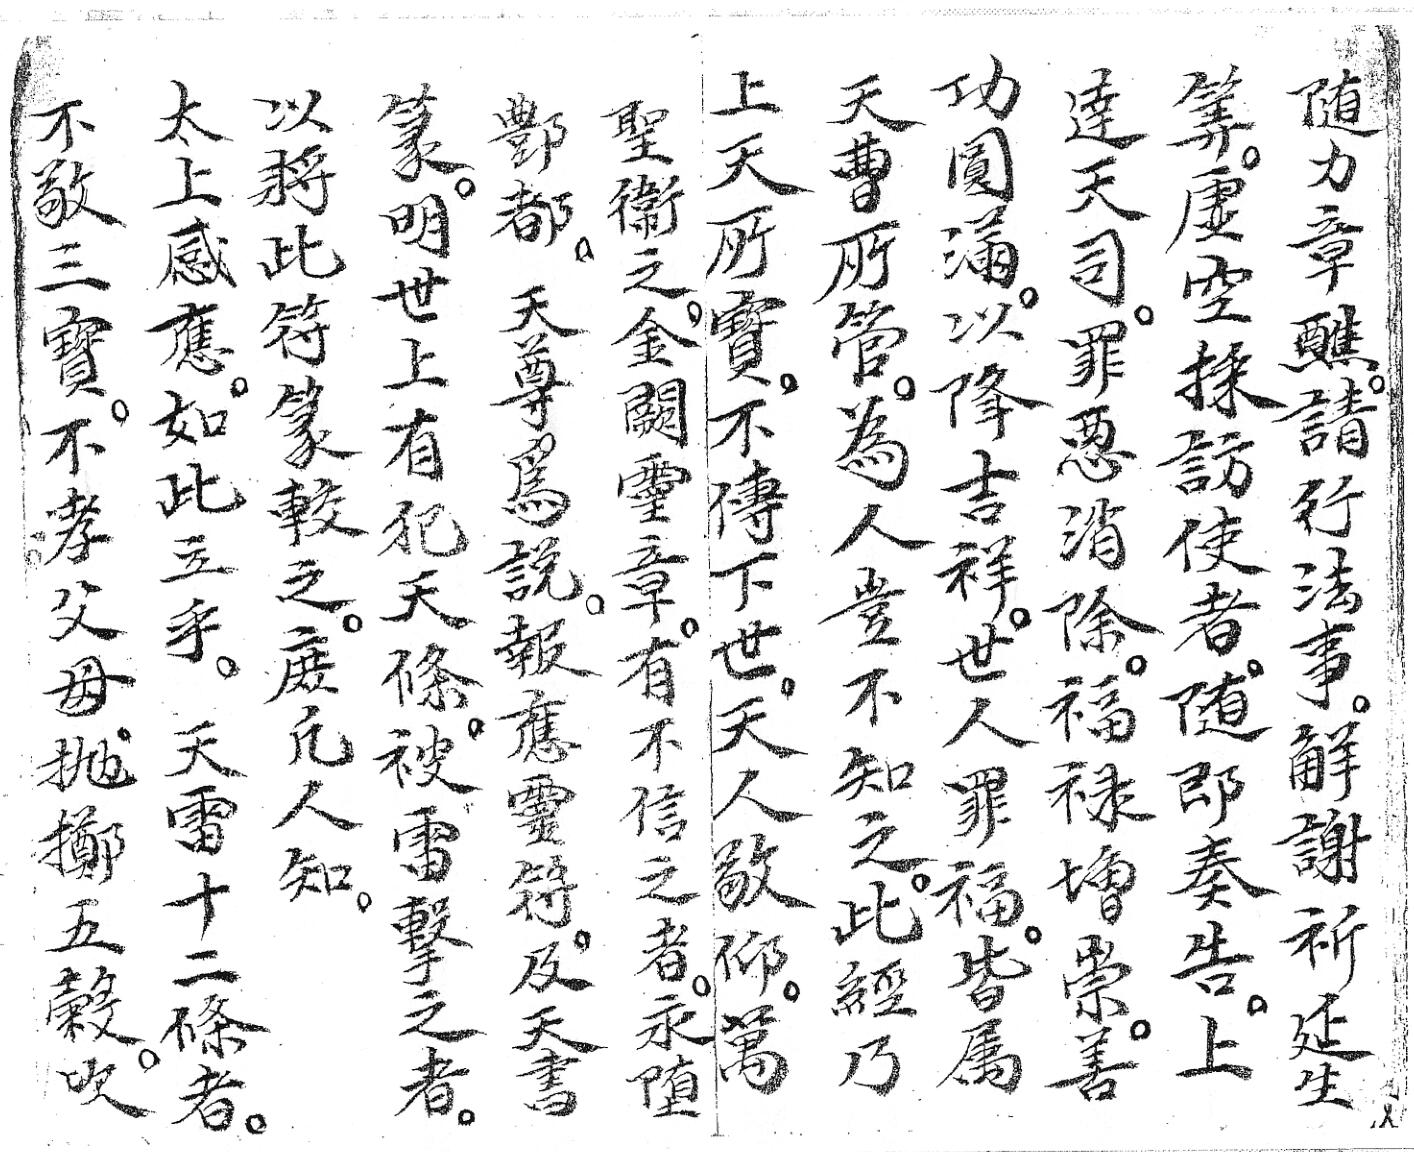 随力章醮。請行法事。解謝祈延生
筭。虚空採訪使者。随即奏告。上
達天司。罪惡消除。福禄增崇。善
功圓滿。以降吉祥。世人罪福。皆属
天曹所管。為人豈不知之。此經乃
上天所寶。不傳下世。天人敬仰。萬
聖衛之。金闕靈章。有不信之者。永堕
酆都。天尊爲說。報應靈符。及天書
篆。明世上有犯天條。被雷擊之者。
以將此符篆較之。庶凡人知。
太上感應。如此立乎。天雷十二條者。
不敬三寶。不孝父母。抛擲五穀。吹